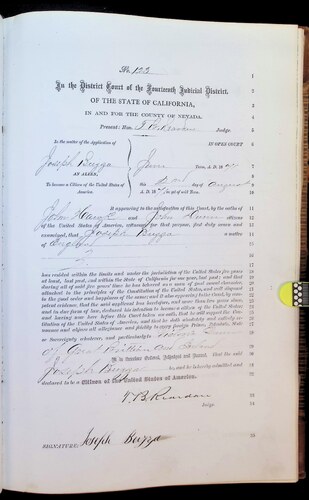 No. 123
In the District Court of the Fourteenth Judicial District,
OF THE STATE OF CALIFORNIA,
IN AND FOR THE COUNTY OF NEVADA.
Present: Hon. T. B. Reardan Judge.
In the matter of the Application of
IN OPEN COURT
Joseph Buzza
June Term, A. D. 18
AN ALIEN,
To become a Citizen of the United States of America.
this day of August
A. D. 18
It appearing to the satisfaction of this Court, by the oaths of
John and John citizens
of the United States of America, witnesses for that purpose, first duly sworn
and examined, that Joseph Buzza a native
of England
has resided within the limits and under the jurisdiction of the United States for five years
at least, last past, and within the State of California for one year, last past; and that
during all of said five years' time he has behaved as a man of good moral character,
attached to the principles of the Constitution of the United States, and well disposed
to the good order and happiness of the same; and it also appearing to the Court, by
petent evidence, that the said applicant has heretofore, and more than two years since,
and in due form of law, declared his intention to become a citizen of the United States,
and having now here before this Court taken an oath, that he will support the Con-
stitution of the United States of America, and that he doth absolutely and entirely re-
nounce and abjure all allegiance and fidelity to every foreign Prince, Potentate, State
or Sovereignty whatever, and particularly to
of Great Brittian and Ireland
It is therefore Ordered, Adjudged and Decreed, that the said
Joseph Buzza be, and he is hereby admitted and
declared to be a Citizen of the United States of America.
T. B. Reardan
Judge.
SIGNATURE: Joseph Buzza